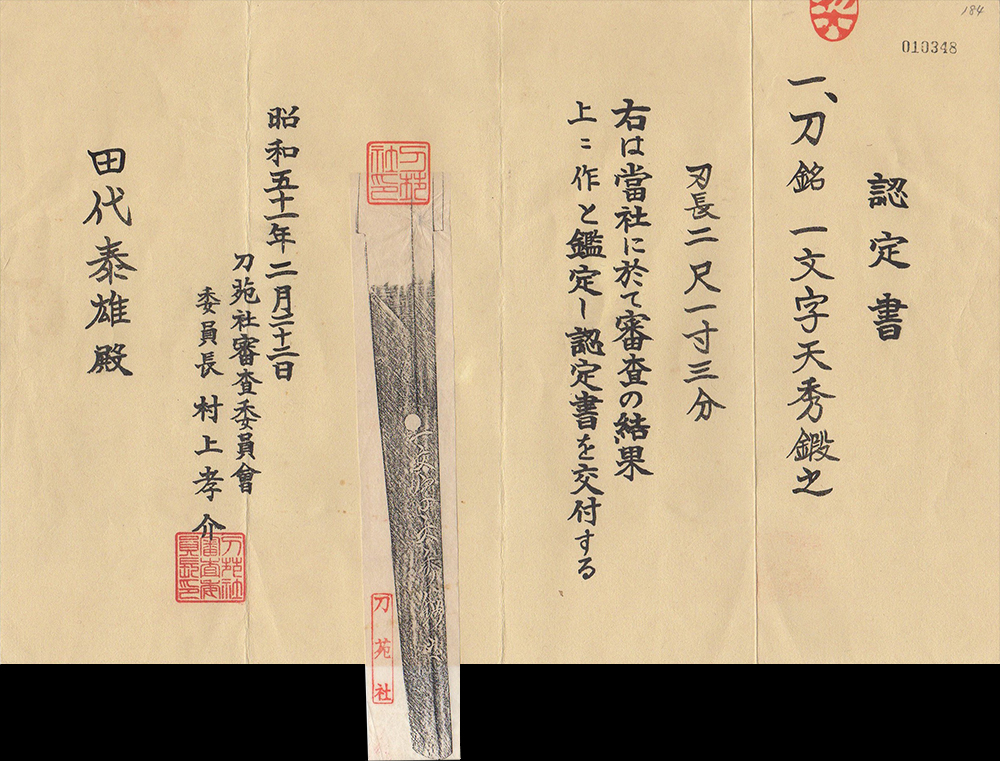 184
010348
認定書
一、刀 銘 一文字天秀鍛之
刃長二尺一寸三分
右は當社に於て審査の結果
上ニ作と鑑定し認定書を交付する
刀苑社
昭和五十一年二月二十二日
刀苑社審査委員會
委員長 村上孝介
田代泰雄殿